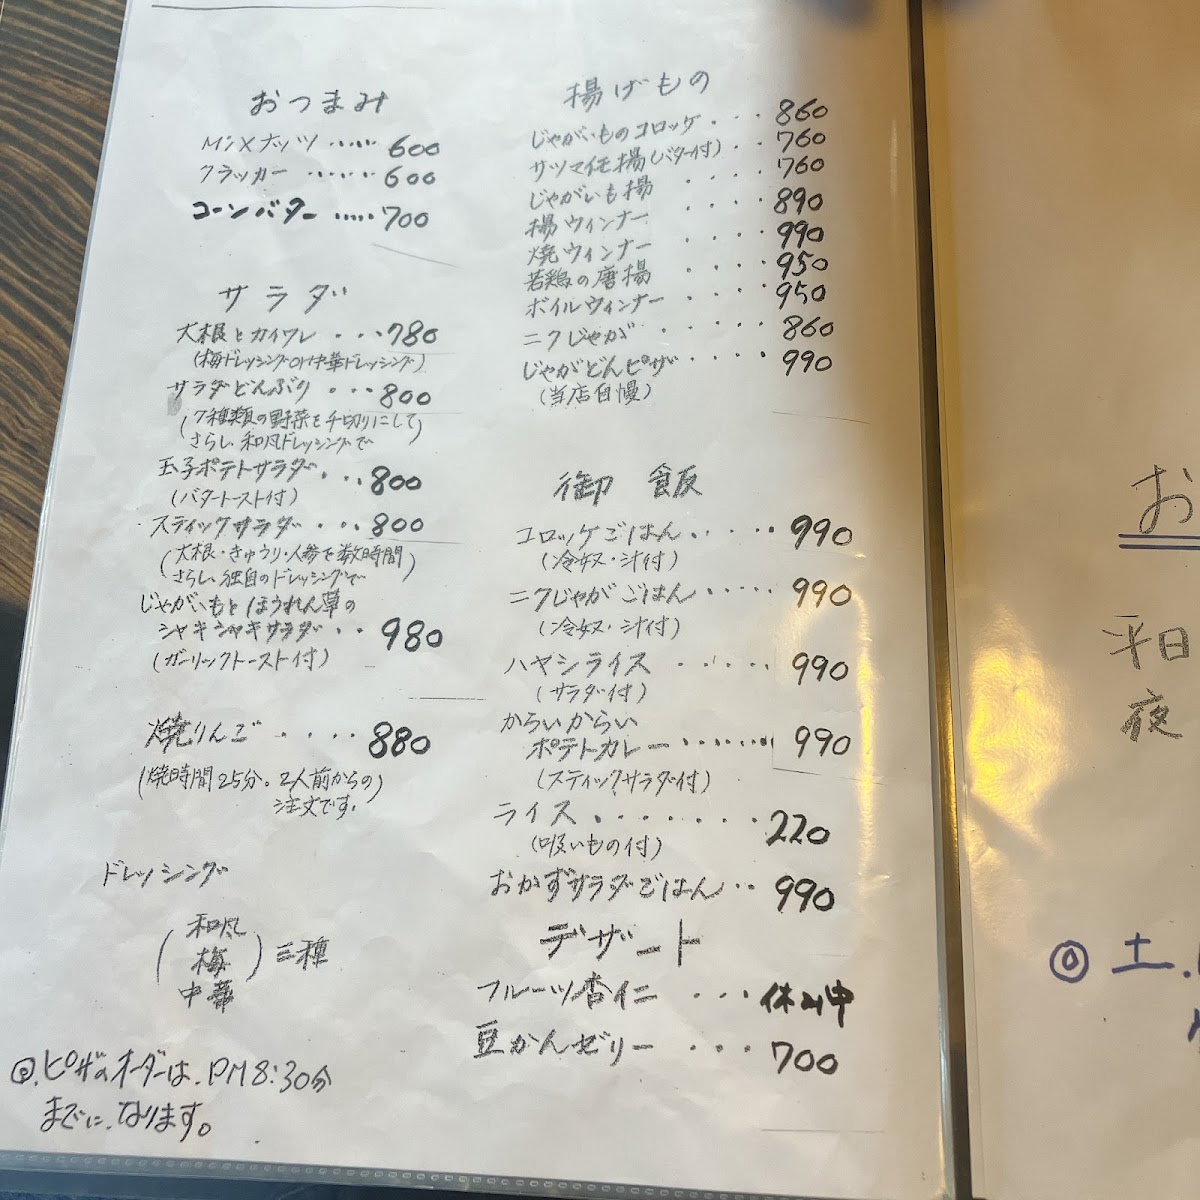 おつまみ
Minxナッツ ‥‥‥ 600
クラッカー ‥‥‥ 600
コーンバター ‥‥‥ 700
サラダ
大根とカイワレ ・・・ 780
(梅ドレッシングor中華ドレッシング)
サラダどんぶり ・・・ 800
(7種類の野菜を千切りにして
さらし、和風ドレッシングで)
玉子ポテトサラダ ・・・ 800
(バタートースト付)
スティックサラダ ・・・ 800
(大根・きゅうり・人参を数時間
さらし、独自のドレッシングで)
じゃがいもとほうれん草の
シャキシャキサラダ ・・ 980
(ガーリックトースト付)
焼りんご ・・・・ 880
(焼時間25分。2人前からの
注文です。)
ドレッシング
(和風
梅
中華) 三種
◎.ピザのオーダーは、PM8:30分
までに、なります。
揚げもの
じゃがいものコロッケ ・・・ 860
サツマイモ揚(バター付) ・・ 760
じゃがいも揚 ・・・・ 760
揚ウィンナー ・・・・ 890
焼ウィンナー ・・・・ 990
若鶏の唐揚 ・・・・ 950
ボイルウィンナー ・・・・ 950
ニクじゃが ・・・・・ 860
じゃがどんピザ ・・・・ 990
(当店自慢)
御飯
コロッケごはん ・・・・・ 990
(冷奴・汁付)
ニクじゃがごはん ・・・・・ 990
(冷奴・汁付)
ハヤシライス ・・・・・ 990
(サラダ付)
からいからい
ポテトカレー ・・・・・・・ 990
(スティックサラダ付)
ライス ・・・・・・・ 220
(吸いもの付)
おかずサラダごはん ・・ 990
デザート
フルーツ杏仁 ・・・ 休み中
豆かんゼリー ・・・ 700
お
平日
夜
◎ 土.